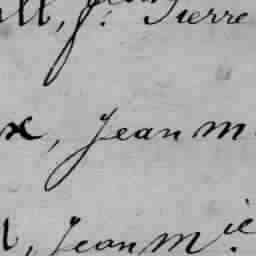 ll, J. Pierre
x, Jean m
l, Jean Mie.